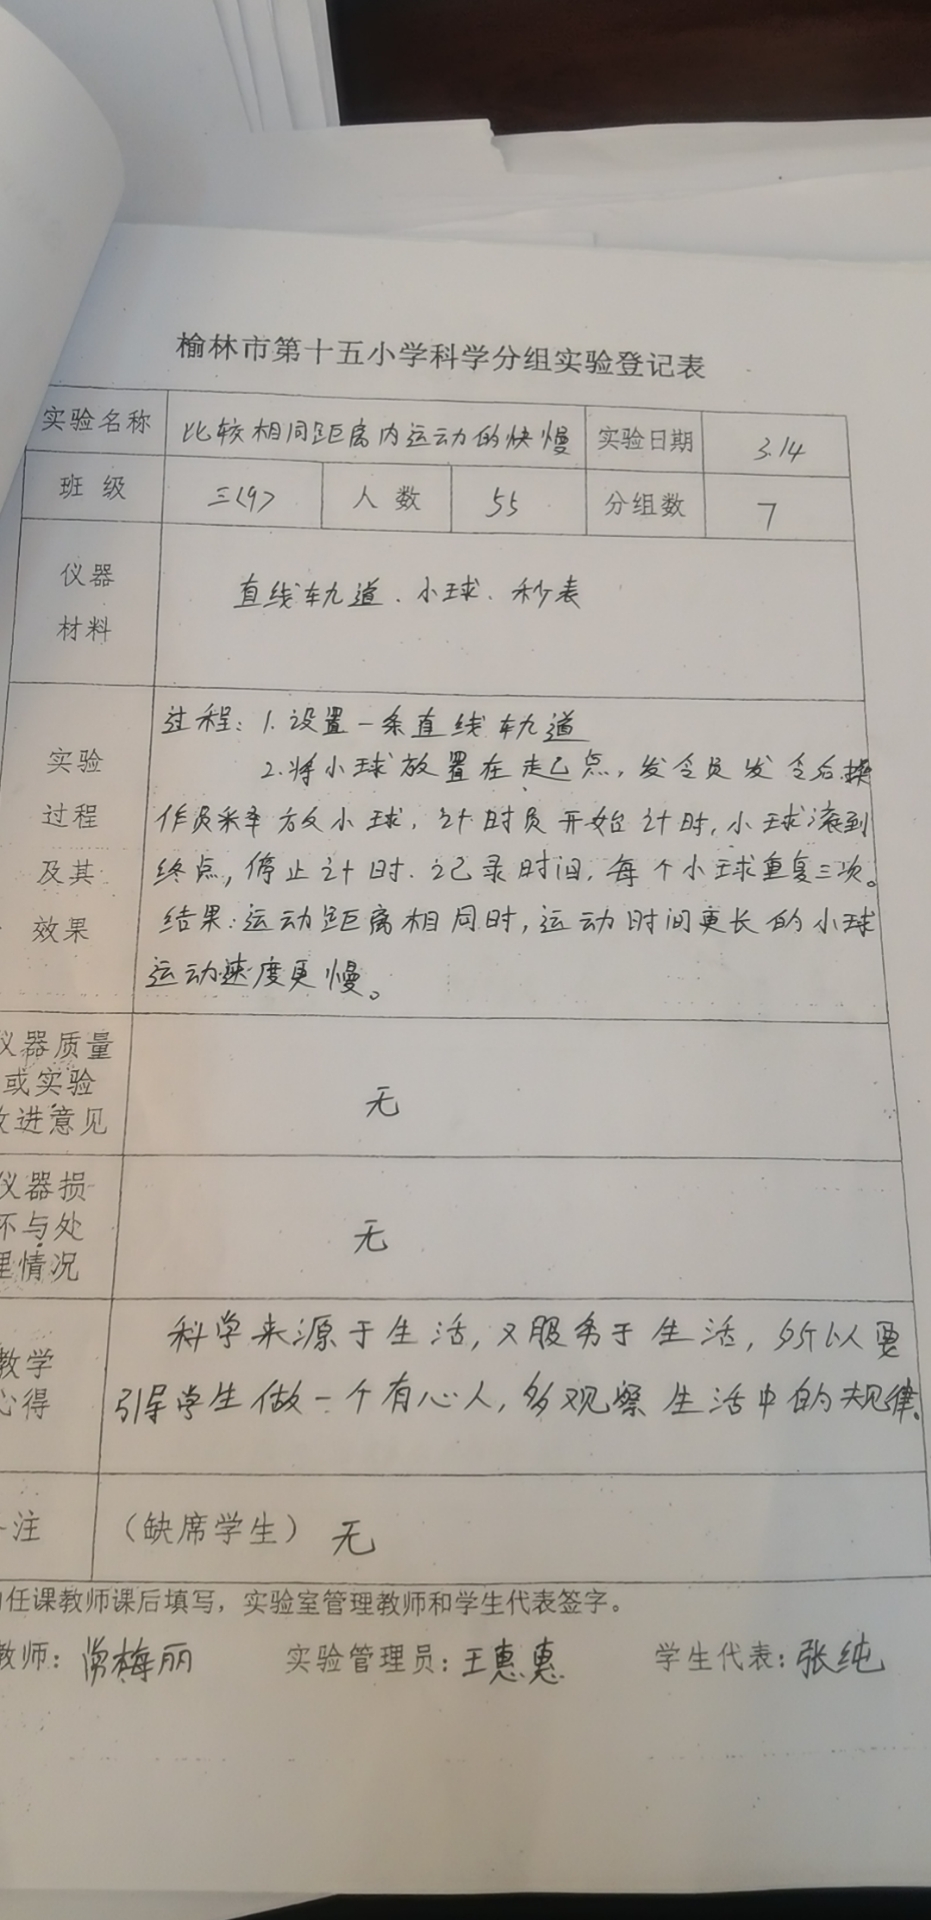 榆林市第十五小学科学分组实验登记表
实验名称 比较相同距离内运动的快慢 实验日期 3.14
班级 三(9) 人数 55 分组数 7
仪器
材料
直线轨道、小球、秒表
实验
过程
及其
效果
过程：1.设置一条直线轨道
2.将小球放置在起点，发令员发令后操
作员释放小球，计时员开始计时，小球滚到
终点，停止计时.记录时间，每个小球重复三次。
结果：运动距离相同时，运动时间更长的小球
运动速度更慢。
仪器质量
或实验
改进意见
无
仪器损
坏与处
理情况
无
教学
心得
科学来源于生活，又服务于生活，所以要
引导学生做一个有心人，多观察生活中的规律.
注 （缺席学生）无
任课教师课后填写，实验室管理教师和学生代表签字。
教师：常梅丽 实验管理员：王惠惠 学生代表：张纯